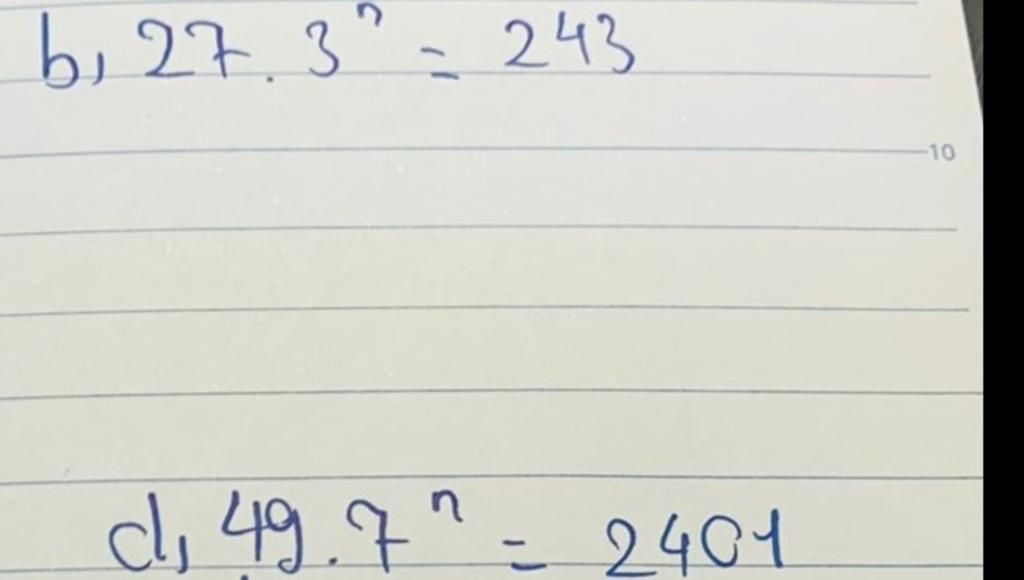 b, 27 . 3ⁿ = 243
10
d, 49 . 7ⁿ = 2401